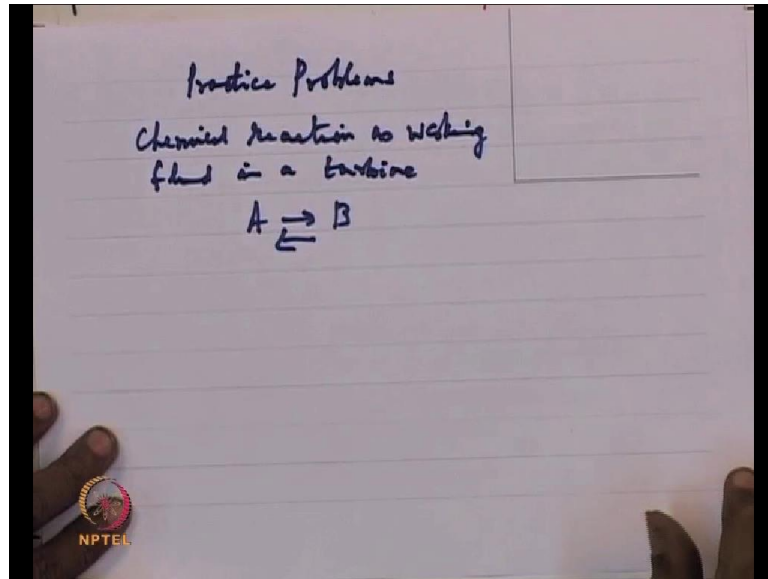 Practice Problems
Chemical reaction as working
fluid in a turbine
A ⇄ B
NPTEL